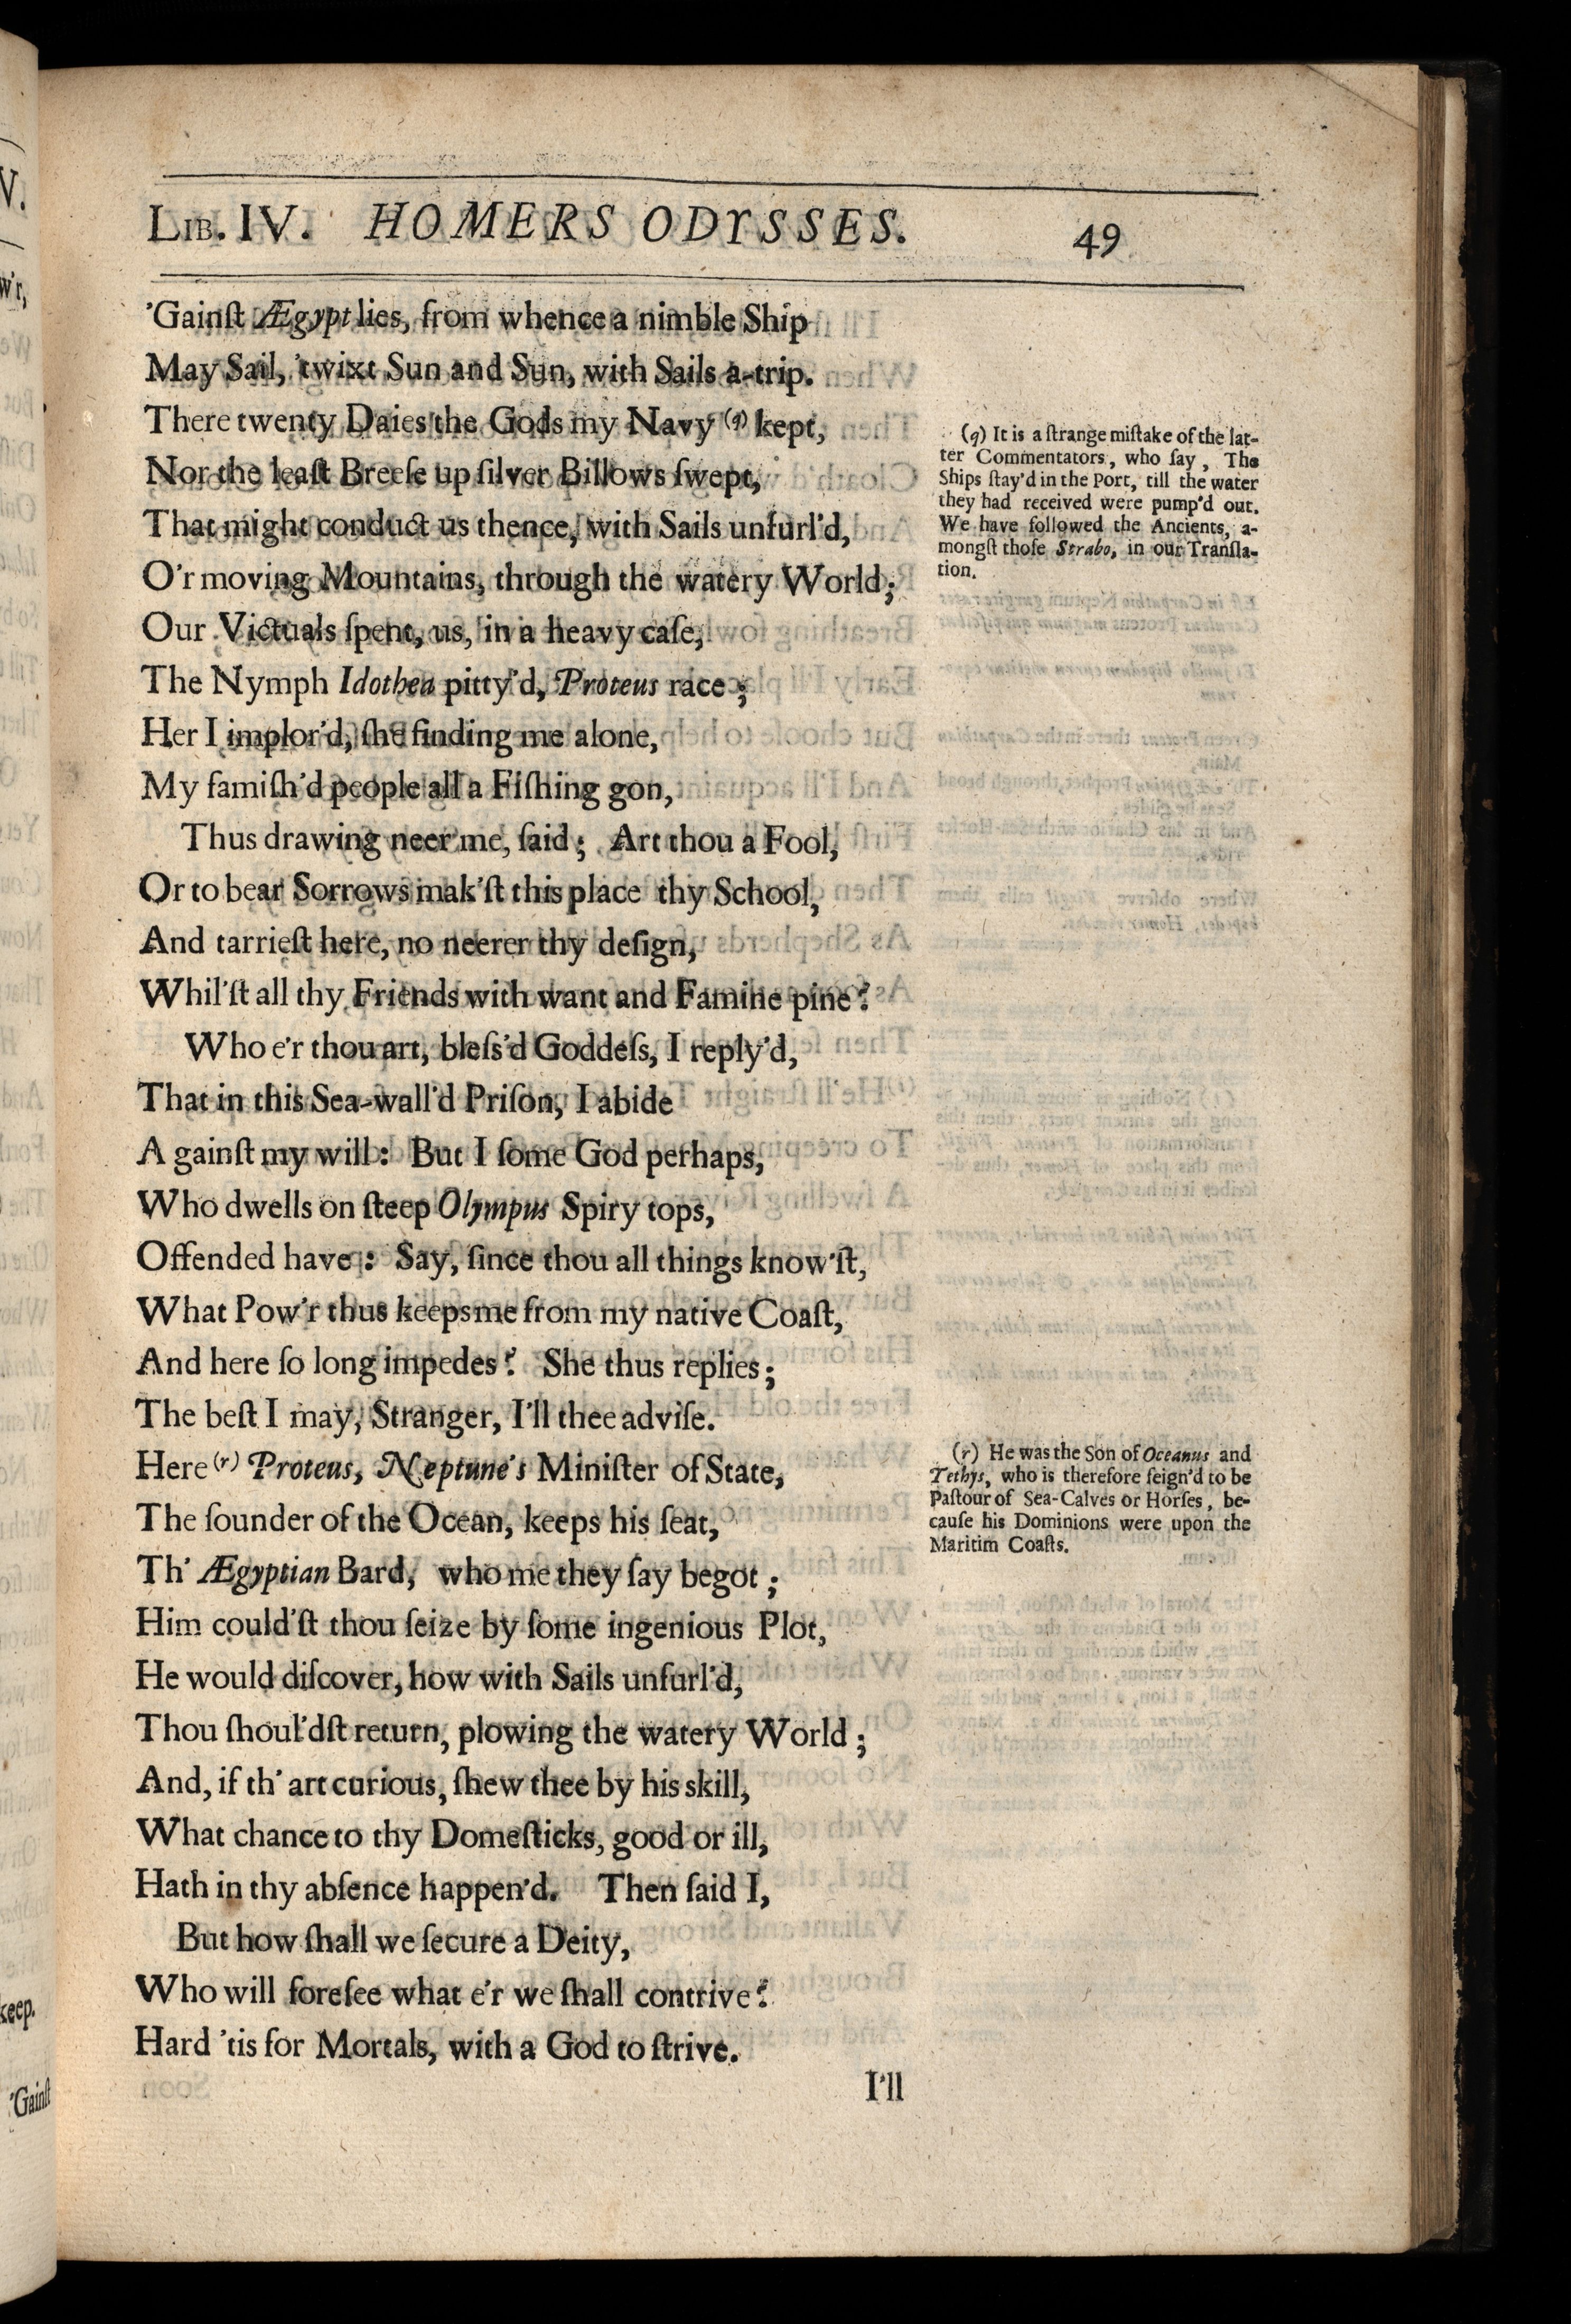 LIB. IV. HOMERS ODYSSES. 49
'Gainſt Ægypt lies, from whence a nimble Ship
May Sail, 'twixt Sun and Sun, with Sails a-trip.
There twenty Daies the Gods my Navy (q) kept,
Nor the leaſt Breeſe up ſilver Billows ſwept,
That might conduct us thence, with Sails unfurl'd,
O'r moving Mountains, through the watery World;
Our Victuals ſpent, us, in a heavy caſe,
The Nymph Idothea pitty'd, Proteus race;
Her I implor'd, ſhe finding me alone,
My famiſh'd people all a Fiſhing gon,
Thus drawing neer me, ſaid; Art thou a Fool,
Or to bear Sorrows mak'ſt this place thy School,
And tarrieſt here, no neerer thy deſign,
Whil'ſt all thy Friends with want and Famine pine?
Who e'r thou art, bleſs'd Goddeſs, I reply'd,
That in this Sea-wall'd Priſon, I abide
A gainſt my will: But I ſome God perhaps,
Who dwells on ſteep Olympus Spiry tops,
Offended have: Say, ſince thou all things know'ſt,
What Pow'r thus keeps me from my native Coaſt,
And here ſo long impedes? She thus replies;
The beſt I may, Stranger, I'll thee adviſe.
Here (r) Proteus, Neptune's Miniſter of State,
The ſounder of the Ocean, keeps his ſeat,
Th' Ægyptian Bard, who me they ſay begot;
Him could'ſt thou ſeize by ſome ingenious Plot,
He would diſcover, how with Sails unfurl'd,
Thou ſhoul'dſt return, plowing the watery World;
And, if th' art curious, ſhew thee by his skill,
What chance to thy Domeſticks, good or ill,
Hath in thy abſence happen'd. Then ſaid I,
But how ſhall we ſecure a Deity,
Who will foreſee what e'r we ſhall contrive?
Hard 'tis for Mortals, with a God to ſtrive.
I'll
(q) It is a ſtrange miſtake of the lat-
ter Commentators, who ſay, The
Ships ſtay'd in the Port, till the water
they had received were pump'd out.
We have followed the Ancients, a-
mongſt thoſe Strabo, in our Tranſla-
tion.
(r) He was the Son of Oceanus and
Tethys, who is therefore feign'd to be
Paſtour of Sea-Calves or Horſes, be-
cauſe his Dominions were upon the
Maritim Coaſts.
V.
w'r,
keep.
'Gainſt